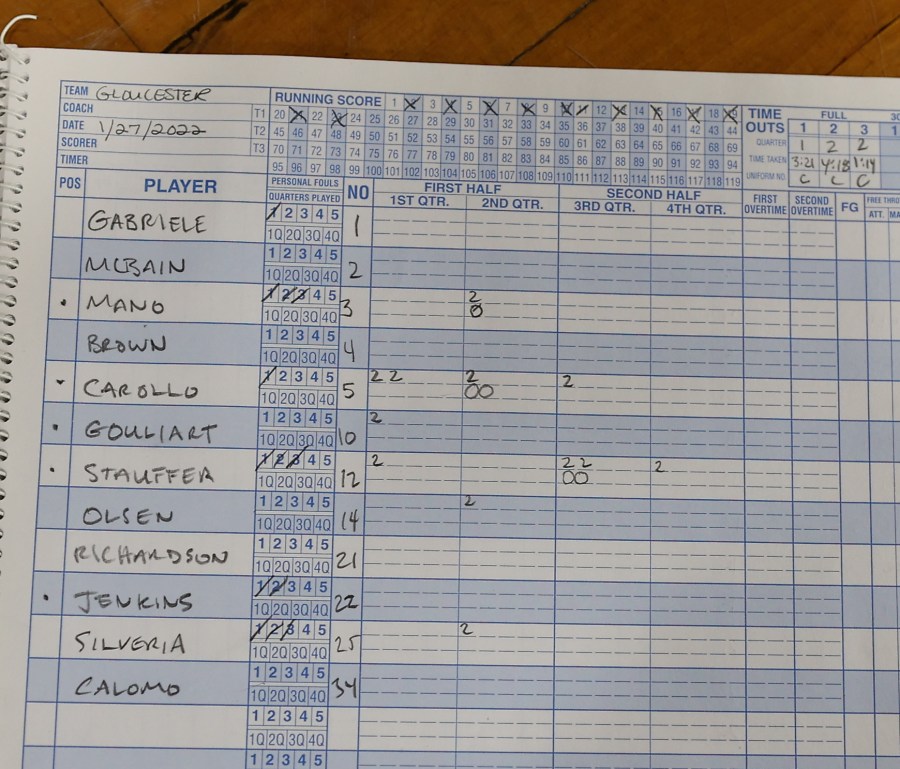 TEAM GLOUCESTER RUNNING SCORE 1 3 5 7 9 12 14 16 18 TIME OUTS FULL 30
COACH T1 20 22 24 25 26 27 28 29 30 31 32 33 34 35 36 37 38 39 40 41 42 43 44 1 2 3 1
DATE 1/27/2022 T2 45 46 47 48 49 50 51 52 53 54 55 56 57 58 59 60 61 62 63 64 65 66 67 68 69 QUARTER 1 2 2
SCORER T3 70 71 72 73 74 75 76 77 78 79 80 81 82 83 84 85 86 87 88 89 90 91 92 93 94 TIME TAKEN 3:21 4:18 1:14
TIMER 95 96 97 98 99 100 101 102 103 104 105 106 107 108 109 110 111 112 113 114 115 116 117 118 119 UNIFORM NO. C C C
POS PLAYER PERSONAL FOULS QUARTERS PLAYED NO FIRST HALF SECOND HALF FIRST OVERTIME SECOND OVERTIME FG FREE THRO
1ST QTR. 2ND QTR. 3RD QTR. 4TH QTR. ATT. MA
GABRIELE 1 2 3 4 5 1
1Q 2Q 3Q 4Q
MCBAIN 1 2 3 4 5 2
1Q 2Q 3Q 4Q
MANO 1 2 3 4 5 3 2
1Q 2Q 3Q 4Q 0
BROWN 1 2 3 4 5 4
1Q 2Q 3Q 4Q
CAROLLO 1 2 3 4 5 5 2 2 2 2
1Q 2Q 3Q 4Q OO
GOULIART 1 2 3 4 5 10 2
1Q 2Q 3Q 4Q
STAUFFER 1 2 3 4 5 12 2 2 2 2
1Q 2Q 3Q 4Q OO
OLSEN 1 2 3 4 5 14 2
1Q 2Q 3Q 4Q
RICHARDSON 1 2 3 4 5 21
1Q 2Q 3Q 4Q
JENKINS 1 2 3 4 5 22
1Q 2Q 3Q 4Q
SILVERIA 1 2 3 4 5 25 2
1Q 2Q 3Q 4Q
CALOMO 1 2 3 4 5 34
1Q 2Q 3Q 4Q
1 2 3 4 5
1Q 2Q 3Q 4Q
1 2 3 4 5